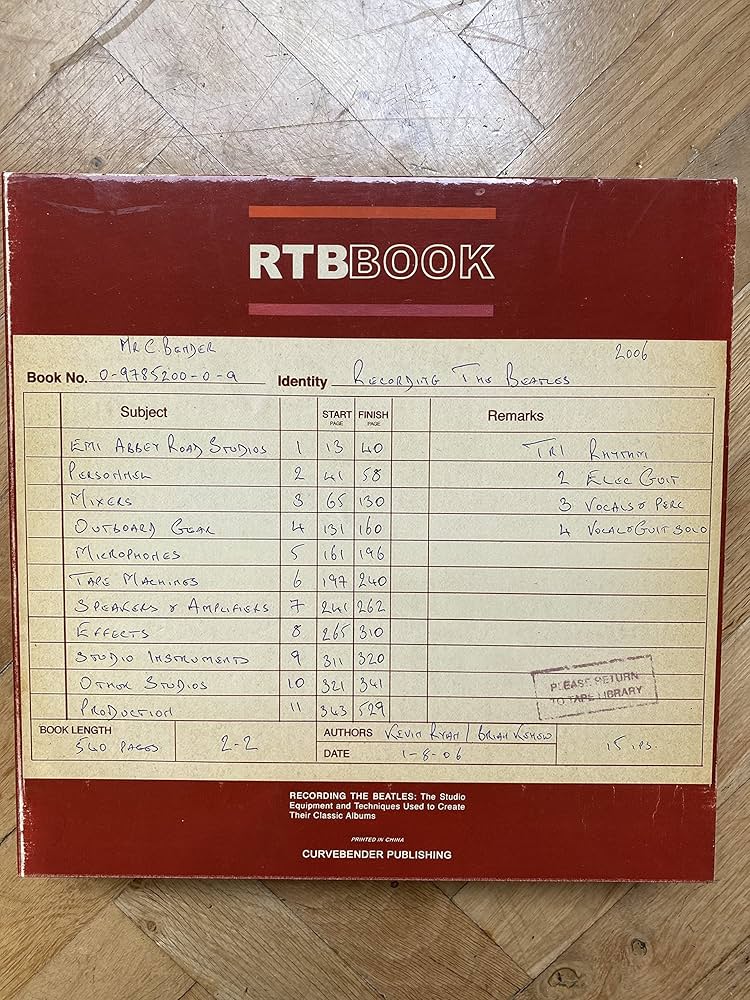 RTBBOOK
MR C. BENDER 2006
Book No. 0-9785200-0-9 Identity RECORDING THE BEATLES
Subject START PAGE FINISH PAGE Remarks
EMI ABBEY ROAD STUDIOS 1 13 40 TR1 RHYTHM
PERSONNEL 2 41 58 2 ELEC GUIT
MIXERS 3 65 130 3 VOCALS & PERC
OUTBOARD GEAR 4 131 160 4 VOCAL & GUIT SOLO
MICROPHONES 5 161 196
TAPE MACHINES 6 197 240
SPEAKERS & AMPLIFIERS 7 241 262
EFFECTS 8 265 310
STUDIO INSTRUMENTS 9 311 320
OTHER STUDIOS 10 321 341
PRODUCTION 11 343 529
PLEASE RETURN
TO TAPE LIBRARY
BOOK LENGTH
540 PAGES 2-2
AUTHORS KEVIN RYAN / BRIAN KEHEW
DATE 1-8-06
15 IPS.
RECORDING THE BEATLES: The Studio
Equipment and Techniques Used to Create
Their Classic Albums
PRINTED IN CHINA
CURVEBENDER PUBLISHING